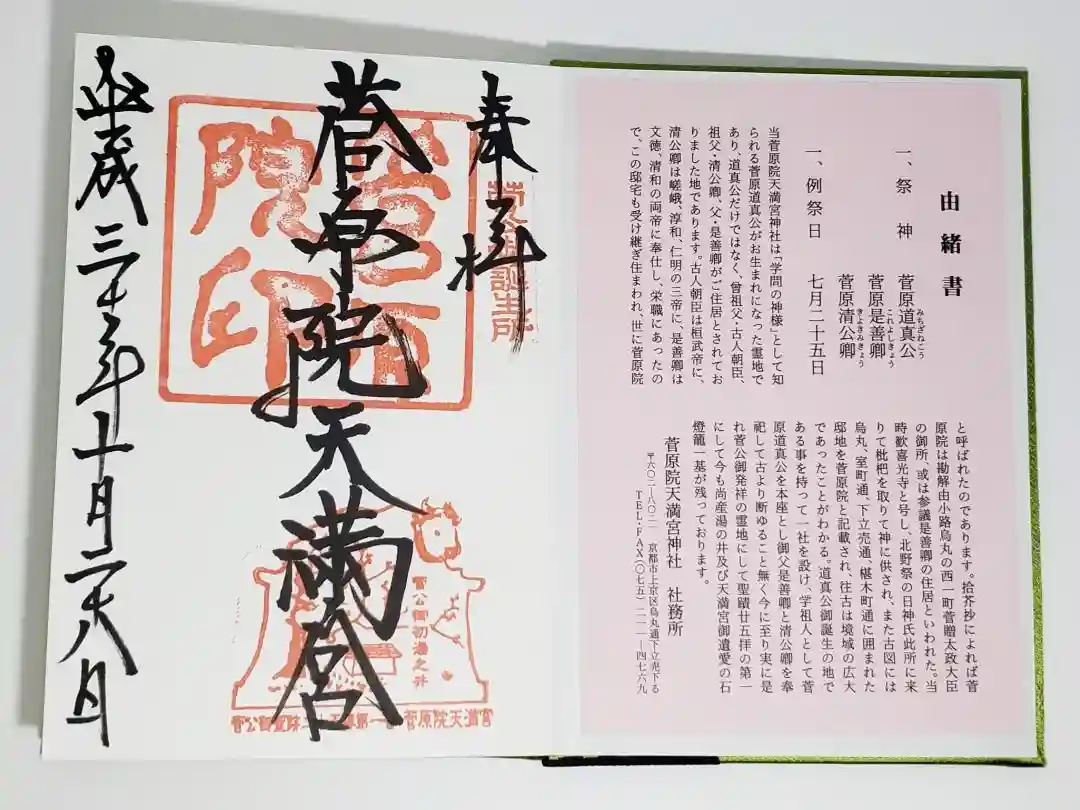 由緒書
一、祭神　菅原道真公
みちざねこう
菅原是善卿
これよしきょう
菅原清公卿
きよきみきょう
一、例祭日　七月二十五日
当菅原院天満宮神社は「学問の神様」として知
られる菅原道真公がお生まれになった霊地で
あり、道真公だけではなく、曾祖父・古人朝臣、
祖父・清公卿、父・是善卿がご住居とされてお
りました地であります。古人朝臣は桓武帝に、
清公卿は嵯峨、淳和、仁明の三帝に、是善卿は
文徳、清和の両帝に奉仕し、栄職にあったの
で、この邸宅も受け継ぎ住まわれ、世に菅原院
と呼ばれたのであります。拾芥抄によれば菅
原院は勘解由小路烏丸の西一町菅贈太政大臣
の御所、或は参議是善卿の住居といわれた。当
時歓喜光寺と号し、北野祭の日神氏此所に来
りて枇杷を取りて神に供され、また古図には
烏丸、室町通、下立売通、椹木町通に囲まれた
邸地を菅原院と記載され、往古は境域の広大
であったことがわかる。道真公御誕生の地で
ある事を持って一社を設け、学祖人として菅
原道真公を本座とし御父是善卿と清公卿を奉
祀して古より断ゆること無く今に至り実に是
れ菅公御発祥の霊地にして聖蹟廿五拝の第一
にして今も尚産湯の井及び天満宮御遺愛の石
燈籠一基が残っております。
菅原院天満宮神社　社務所
〒六〇二―八〇二一　京都市上京区烏丸通下立売下る
TEL・FAX（〇七五）二一一―四七六九
奉拝
菅公御誕生所
菅原院天満宮
菅原院印
菅公御初湯之井
菅公聖蹟二十五拝第一番菅原院天満宮
平成三十年十月二十八日